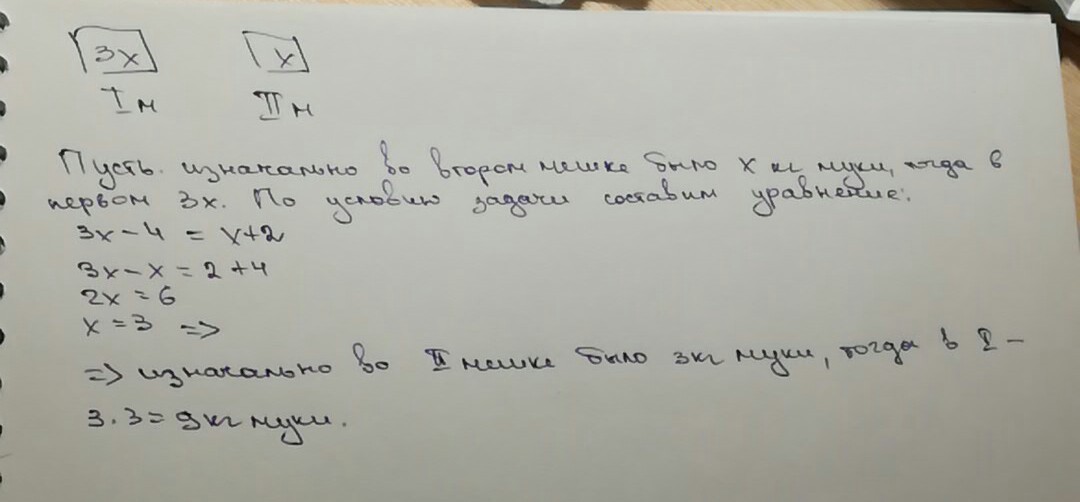 3x x
I м II м
Пусть изначально во втором мешке было x кг муки, тогда в
первом 3x. По условию задачи составим уравнение:
3x-4 = x+2
3x-x=2+4
2x=6
x=3 =>
=> изначально во II мешке было 3кг муки, тогда в I -
3·3=9кг муки.